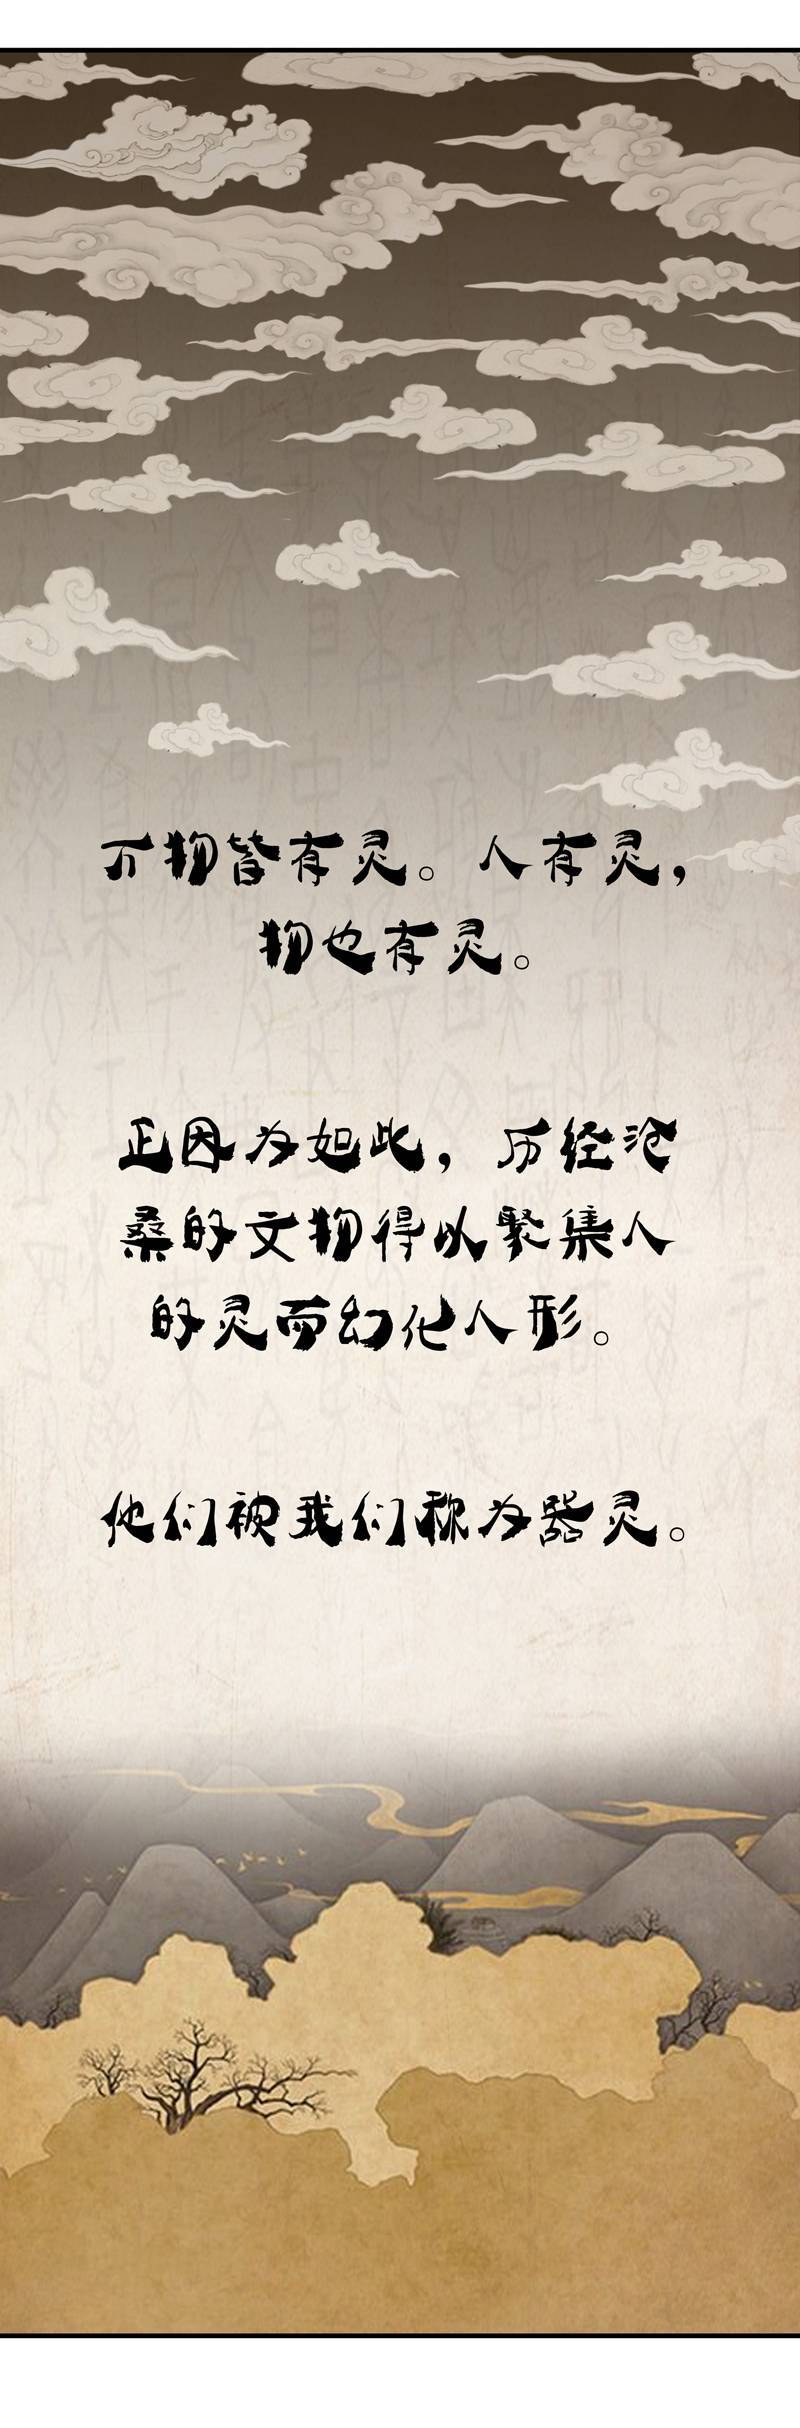 万物皆有灵。人有灵，
物也有灵。
正因为如此，历经沧
桑的文物得以聚集人
的灵而幻化人形。
他们被我们称为器灵。